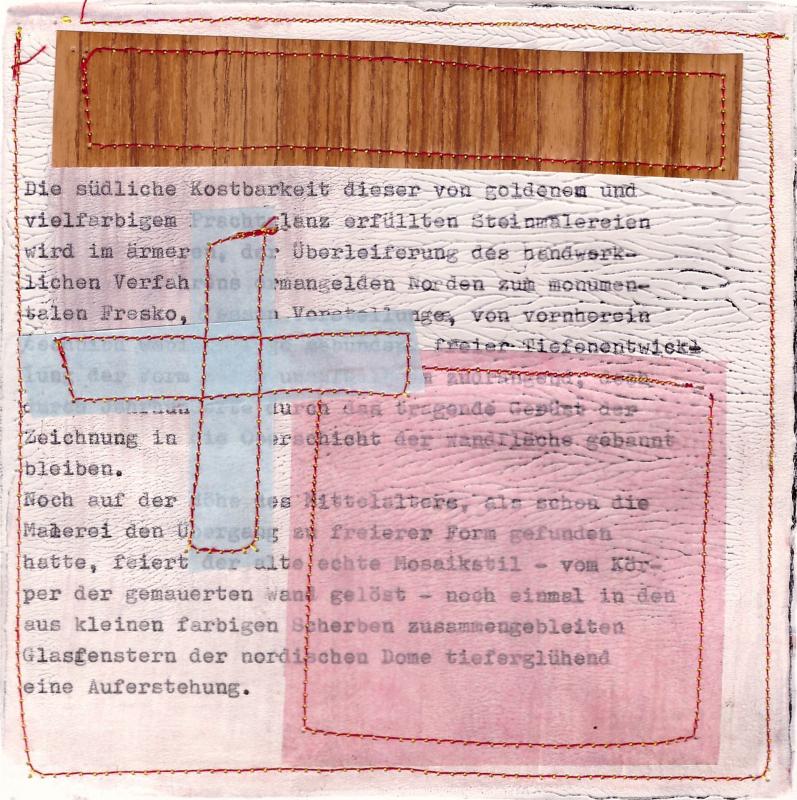 Die südliche Kostbarkeit dieser von goldenem und
vielfarbigem Prachtglanz erfüllten Steinmalereien
wird im ärmeren, der Überleiferung des handwerk-
lichen Verfahrens ermangelden Norden zum monumen-
talen Fresko, dessen Vorstellungen, von vornherein
freier Tiefenentwickl
lung der Form
durch das tragende Gerüst der
Zeichnung in die Oberschicht der Wandfläche gebannt
bleiben.
Noch auf der Höhe des Mittelalters, als schon die
Malerei den Übergang zu freierer Form gefunden
hatte, feiert der alte echte Mosaikstil - vom Kör-
per der gemauerten Wand gelöst - noch einmal in den
aus kleinen farbigen Scherben zusammengebleiten
Glasfenstern der nordischen Dome tieferglühend
eine Auferstehung.